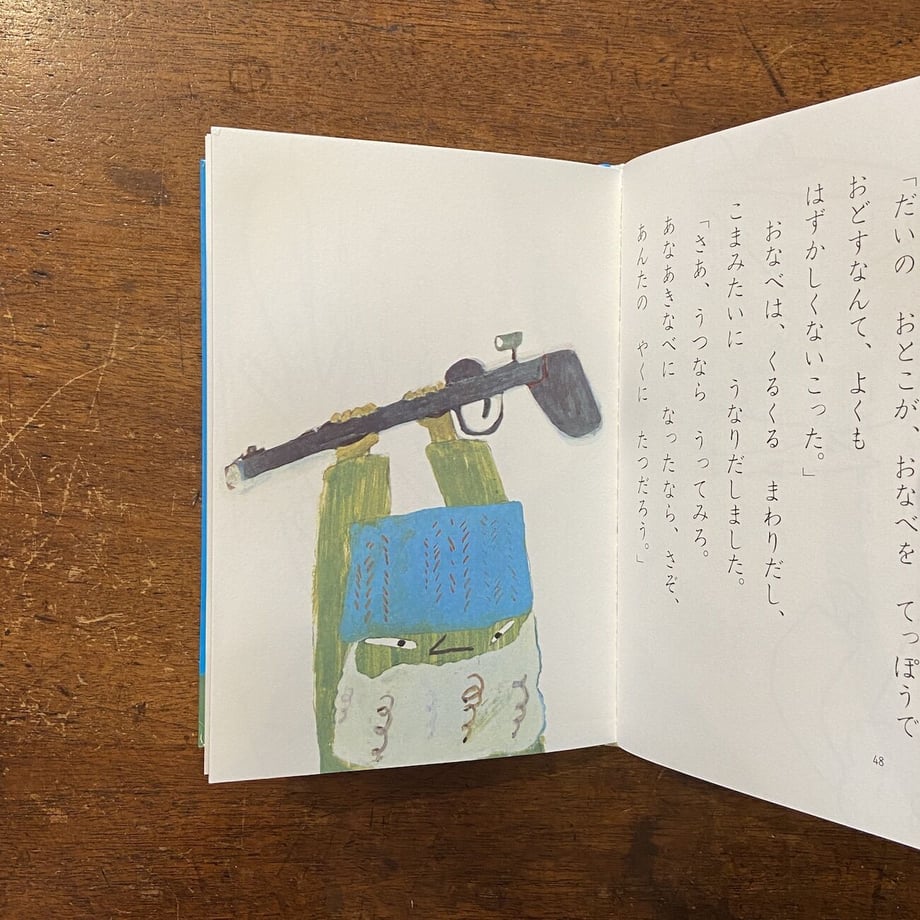 「だいの　おとこが、おなべを　てっぽうで
おどすなんて、よくも
はずかしくないこった。」
おなべは、くるくる　まわりだし、
こまみたいに　うなりだしました。
「さあ、うつなら　うってみろ。
あなあきなべに　なったなら、さぞ、
あんたの　やくに　たつだろう。」
48